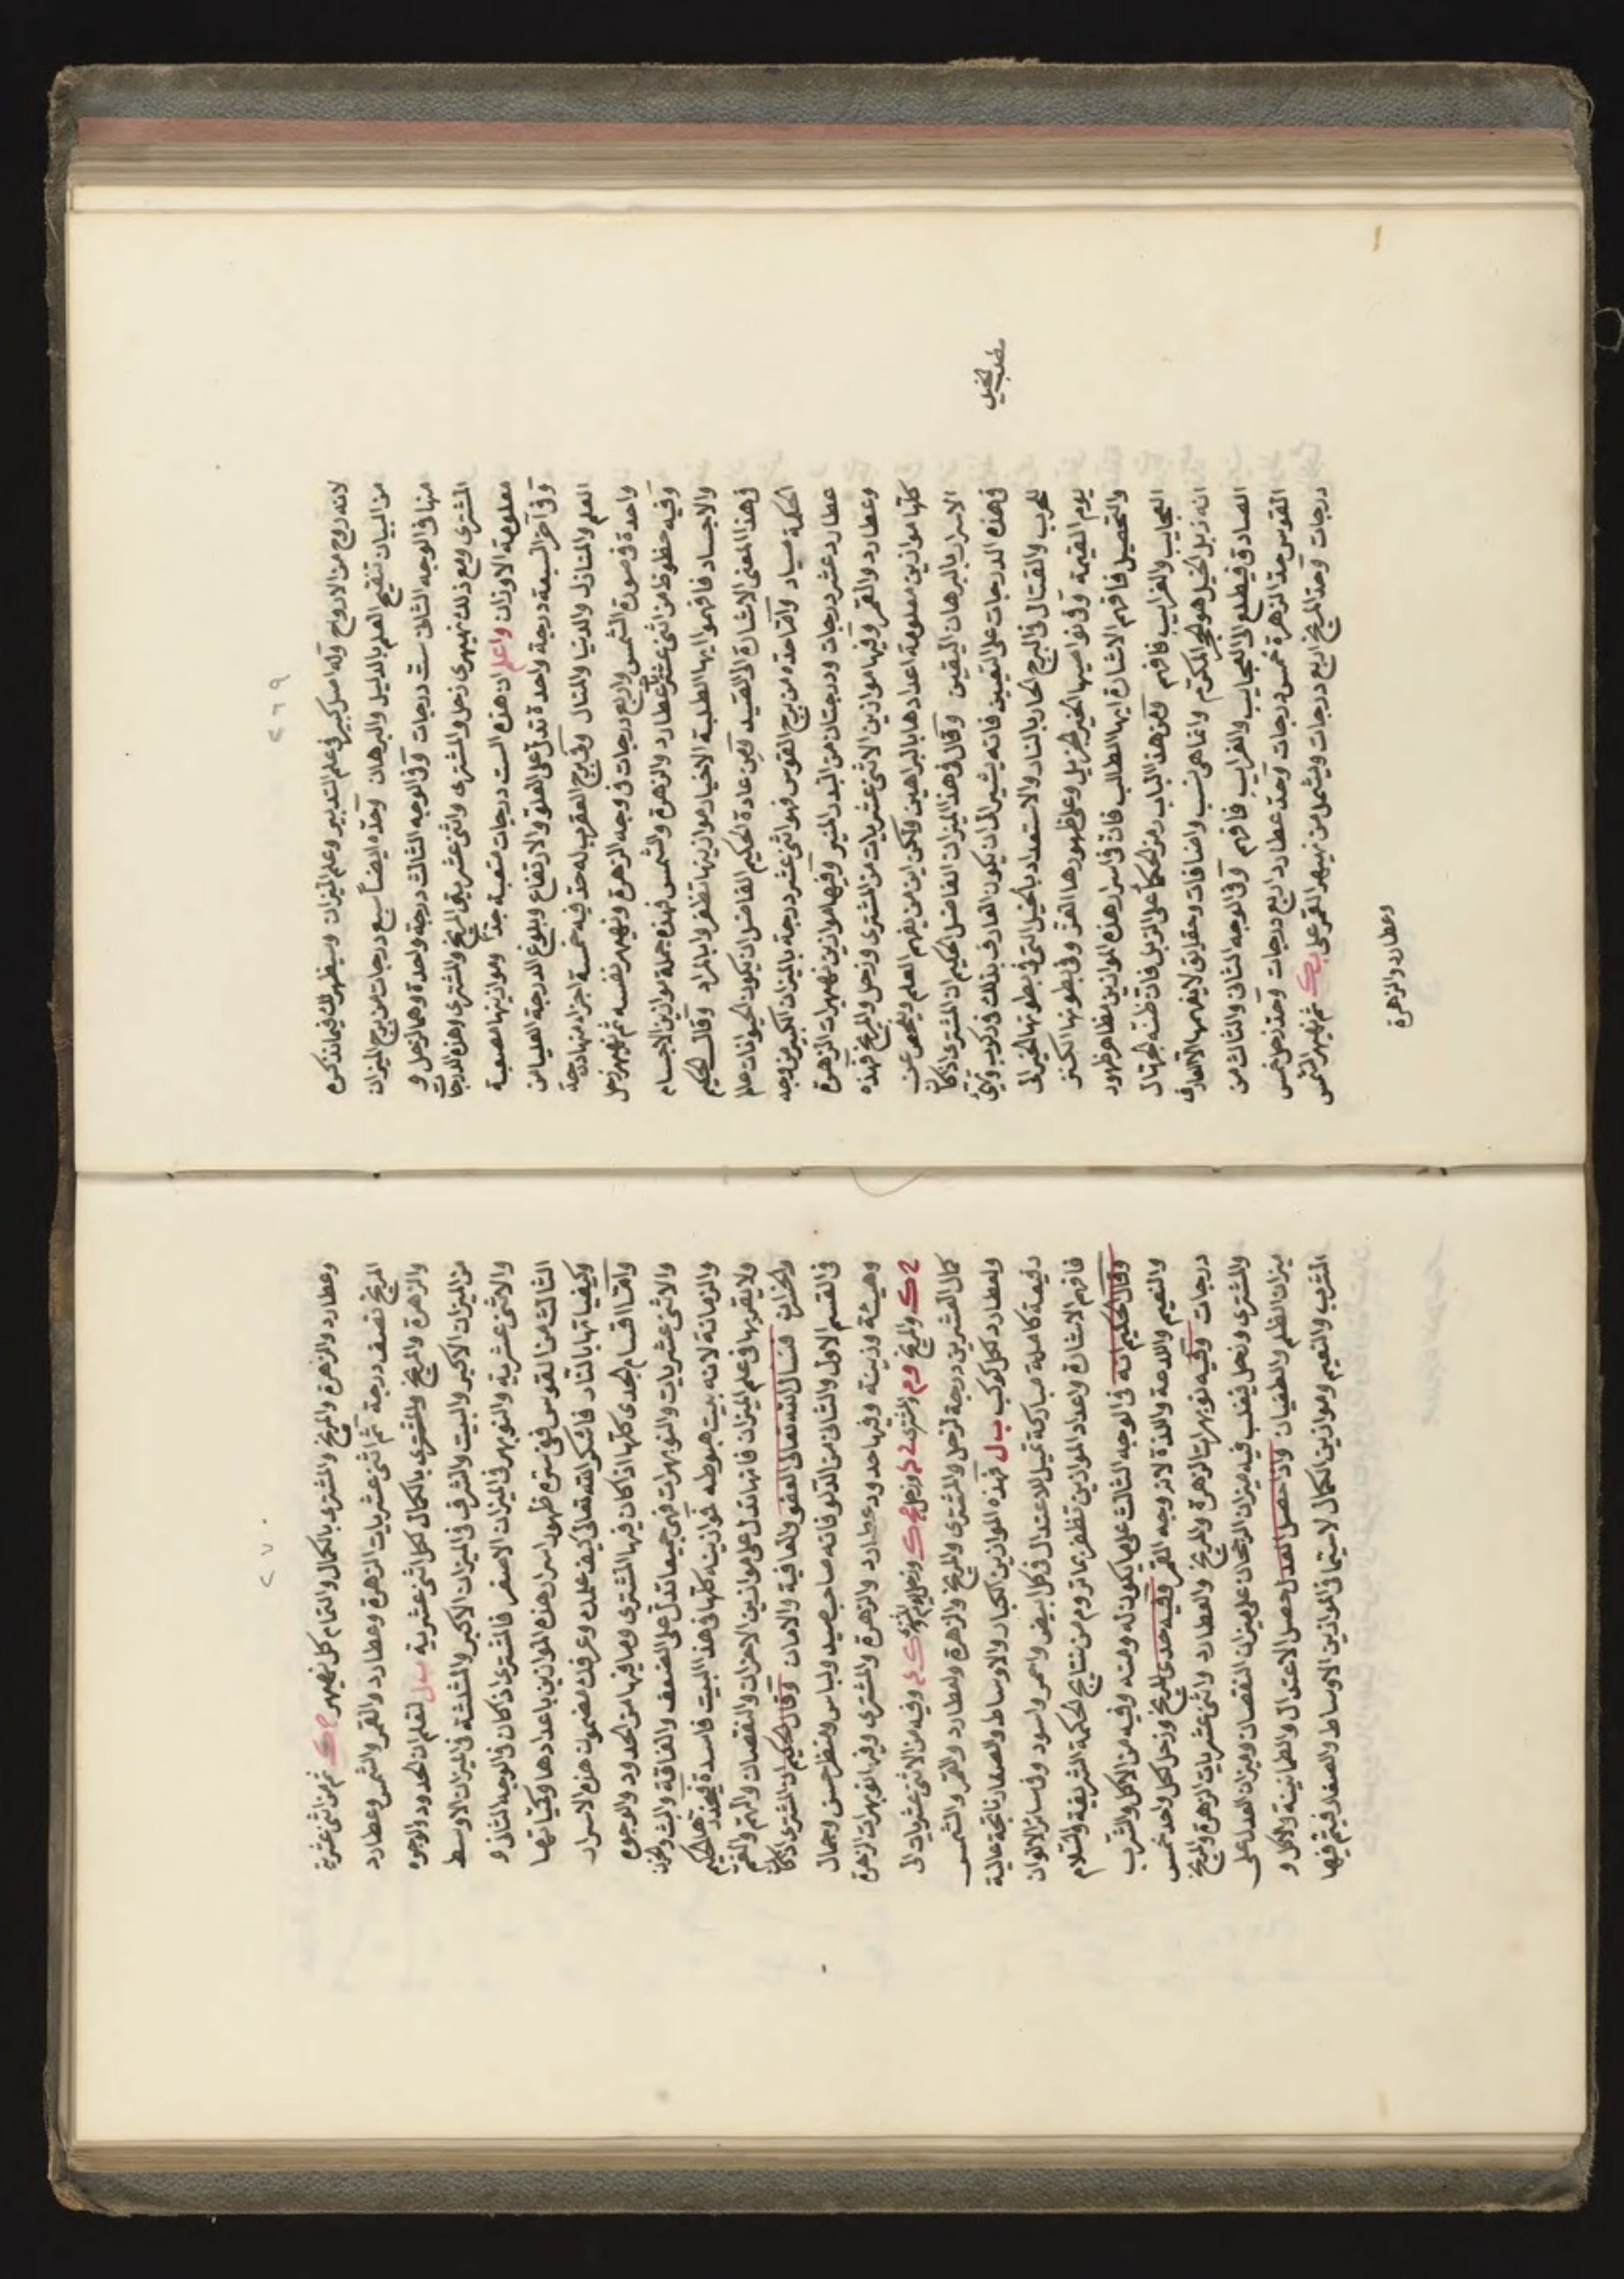 ٢٦٩
لانه روح من الارواح وله اصل كبير فى علم التدبير وعلم الميزان وسيظهر لك فيما نذكره
من البيان تنقيح العلم بالدليل والبرهان وحدّه ايضاً سبع درجات من برج الميزان
منها فى الوجه الثانى ست درجات وفى الوجه الثالث درجة واحدة وهما لزحل و
المشترى ومع ذلك نيمهرى زحل والمشترى واثنى عشريتى المريخ والمشترى وهذه الدرجات
معلومة الاوزان واعلم ان هذه الست درجات متعبة جداً وموازينها مصعبة
وفى آخر السبعة درجة واحدة تدل على العلو والارتفاع وبلوغ الدرجة العليا من
العلم والمنازل والدنيا والمنال وفى برج العقرب له حد فيه خمسة اجزاء منها درجة
واحدة فى صورة الشمس واربع درجات فى وجه الزهرة ونيمهر نفسه ثم نيمهر زحل
وفيه حظوظ من اثنى عشرية عطارد والزهرة والشمس فهذه جملة موازين الاجسام
والاجساد فافهموا ايها الطلبة الاخيار موازينها تظفروا بالمراد وقال الحكيم
فى هذا المعنى الاشارة الى القيد ومن عادة الحكيم الفاضل ان يكون لحيوانات علم
الحكمة صياد وامّا حدّه من برج القوس فهو اثنى عشر درجة بالميزان الكبير من وجه
عطارد عشر درجات ودرجتان من البدر المنير وفيها موازين نيمهرات الزهرة
وعطارد والقمر وفيها موازين الاثنى عشريات من المشترى وزحل والمريخ فهذه
كلها موازين معلومة اعدادها بالبراهين ولكن اين من يفهم العلم ويفحص عن
الاسرار بالبرهان اليقين وقال فى هذا الميزان الفاضل الحكيم ان المشترى اذا كان
فى هذه الدرجات على التعيين فانه يشير الى ان يكون العارف بذلك فى ركوب وتهيئ
للحرب والقتال فى البرج الحار بالنار والاستعداد بالخيل التى فى بطونها الخير الى
يوم القيمة وفى نواصيها الخير الجزيل وعلى ظهورها العز وفى بطونها الكنز
والتحصيل فافهم الاشارة ايها الطالب فان فى اسرار هذه الموازين مظاهر ظهور
العجايب والغرايب فافهم ومن هذا الباب رمز الحكمأ على الزبل فان ظنته الجهال
انه زبل الخيل هو الحجر المكرّم وانما هى نسب واضافات وحقايق لا يفهمها الا العارف
الصادق فيطلع الى العجايب والغرايب فافهم وفى الوجه الثانى والثالث من
القوس حدّ الزهرة خمس درجات وحد عطارد اربع درجات وحدّ زحل خمس
درجات وحدّ المريخ اربع درجات ويشمل من نيمهر القمر على ثم نيمهر الشمس
وعطارد والزهرة
٢٧٠
وعطارد والزهرة والمريخ والمشترى بالكمال والتمام كل نيمهر ثم من اثنى عشرية
المريخ نصف درجة ثم اثنى عشريات الزهرة وعطارد والقمر والشمس وعطارد
والزهرة والمريخ والمشترى بالكمال كل اثنى عشرية لتعلم ان الحدود والوجوه
من الميزان الاكبر والبيت والشرف فى الميزان الاكبر والمثلثة فى الميزان الاوسط
والاثنى عشرية والنوبهر فى الميزان الاصغر فالمشترى اذا كان فى الوجه الثانى و
الثالث من القوس ففى سرع ظهور اسرار هذه الموازين باعدادها وكميّاتها
وكيفياتها بالنار فاشكر الله تعالى كيف علمك وعرفك مضمون هذه الاسرار
وامّا اقسام الجدى كلها اذا كان فيها المشترى وما فيها من الحدود والوجوه
والاثنى عشريات والنوبهرات فهى جميعا تدل على الضعف والفاقة والبث والحزن
والزمانة لانه بيت هبوطه فموازينه كلها فى هذا البيت فاسدة فيحذرها الحكيم
ولا يقربها فى علم الميزان فانها تدل على موازين الاحزان والنقصان والهم والغم
والخسران فنسال الله تعالى العفو والعافية والامان وقال الحكيم ان المشترى اذا كان
فى القسم الاول والثانى من الدلو فانه صاحب صيد ولباس ومنظر حسن وجمال
وهيئة وزينة وفيها حدود عطارد والزهرة والمشترى وفيها نوبهرات الزهرة
والمريخ والمشترى وزحل وفيه من الاثنى عشريات الى
كمال العشرين درجة لزحل والمشترى والمريخ والزهرة وعطارد والقمر والشمس
ولعطارد كل كوكب فهذه الموازين الكبار والاوساط والصغار ناتجة عالية
رفيعة كاملة مباركة تميل للاعتدال فى كل ابيض واحمر واسود وفى ساير الالوان
فافهم الاشارة واعداد الموازين تظفر بما تروم من نتايج الحكمة الشريفة والسلام
وقال الحكيم انه فى الوجه الثالث على ما يكون له ومنه وفيه من الاكل والشرب
والنعيم والدعة واللذة لانه وجه القمر وفيه حدى المريخ وزحل لكل واحد خمس
درجات وفيه نوبهرات الزهرة والمريخ والعطارد واثنى عشريات الزهرة والمريخ
والمشترى وزحل يغلب فيه ميزان الرجحان على ميزان النقصان وميزان العدل على
ميزان الظلم والطغيان واذا حصل العدل حصل الاعتدال والطمانينة والاكل و
الشرب والنعيم وموازين الكمال لاسيما فى الموازين الاوساط والصغار فيتم فيها